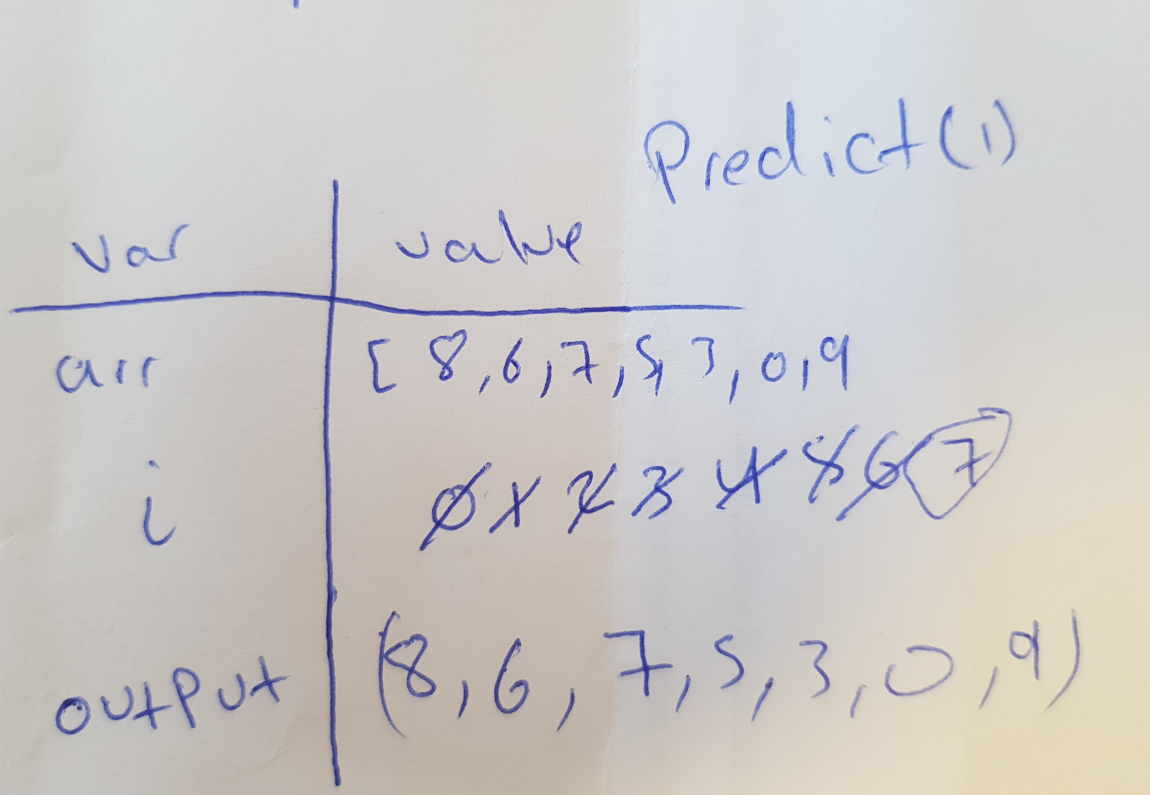 Predict(1)
var value
arr [ 8,6,7,5,3,0,9
i 0 1 2 3 4 5 6 7
output (8,6,7,5,3,0,9)